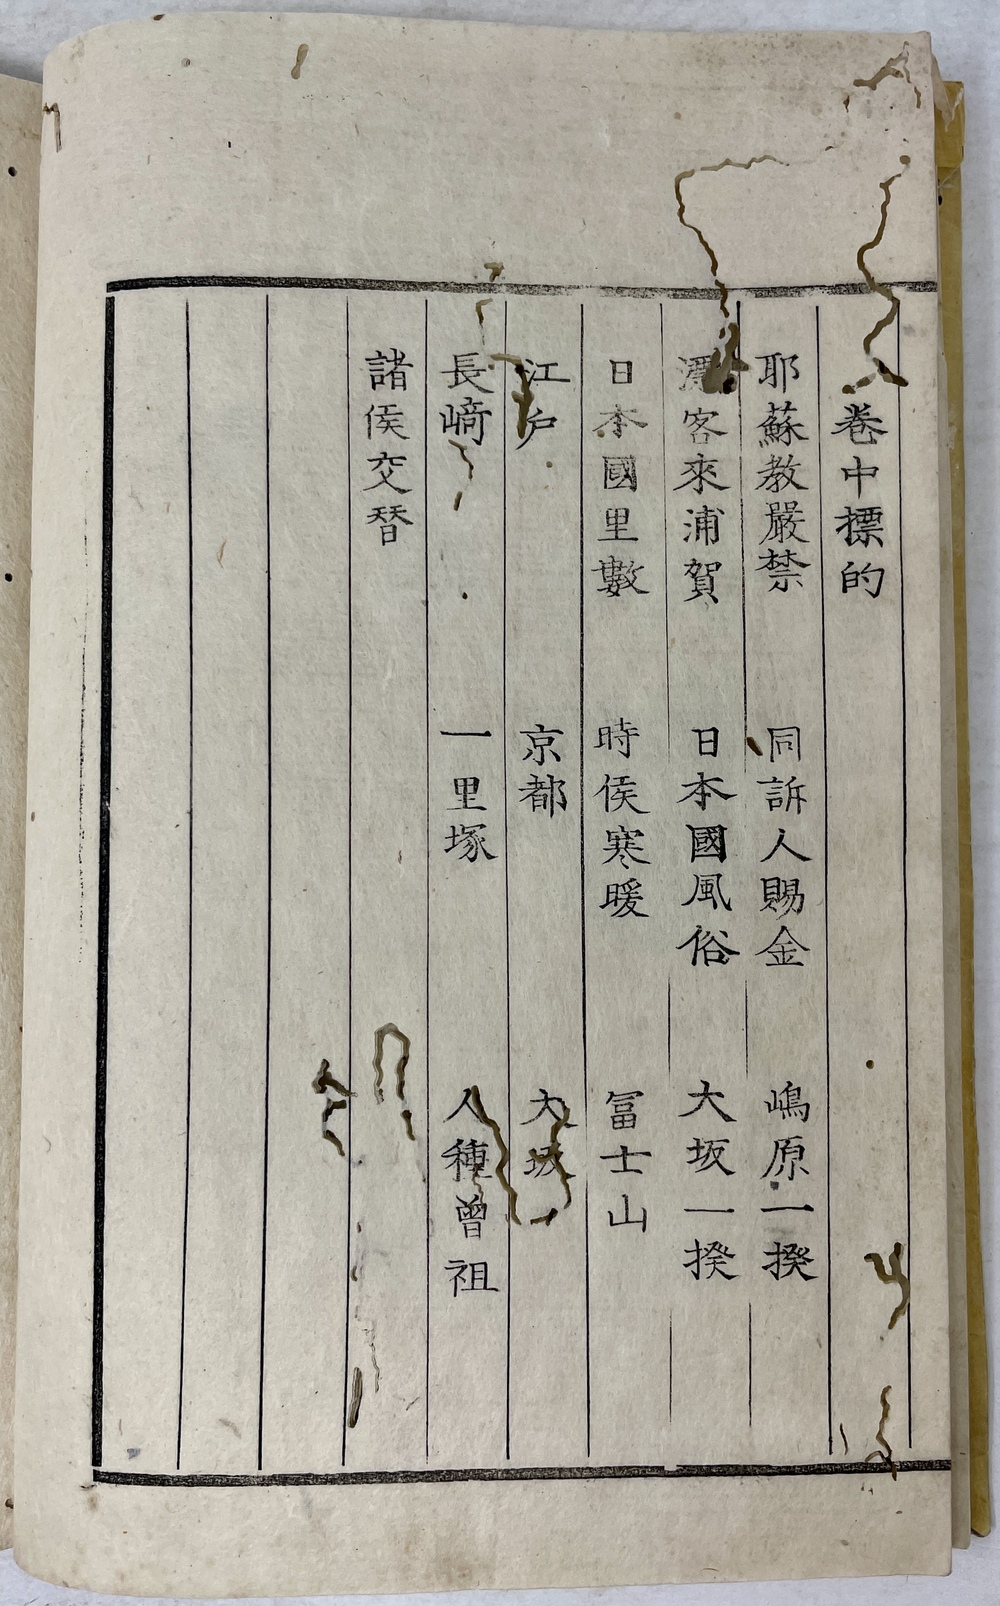 卷中摽的
耶蘇教嚴禁　同訴人賜金　嶋原一揆
漂客來浦賀　日本國風俗　大坂一揆
日本國里數　時侯寒暖　冨士山
江戸　京都　大坂
長﨑　一里塚　人種曾祖
諸侯交替